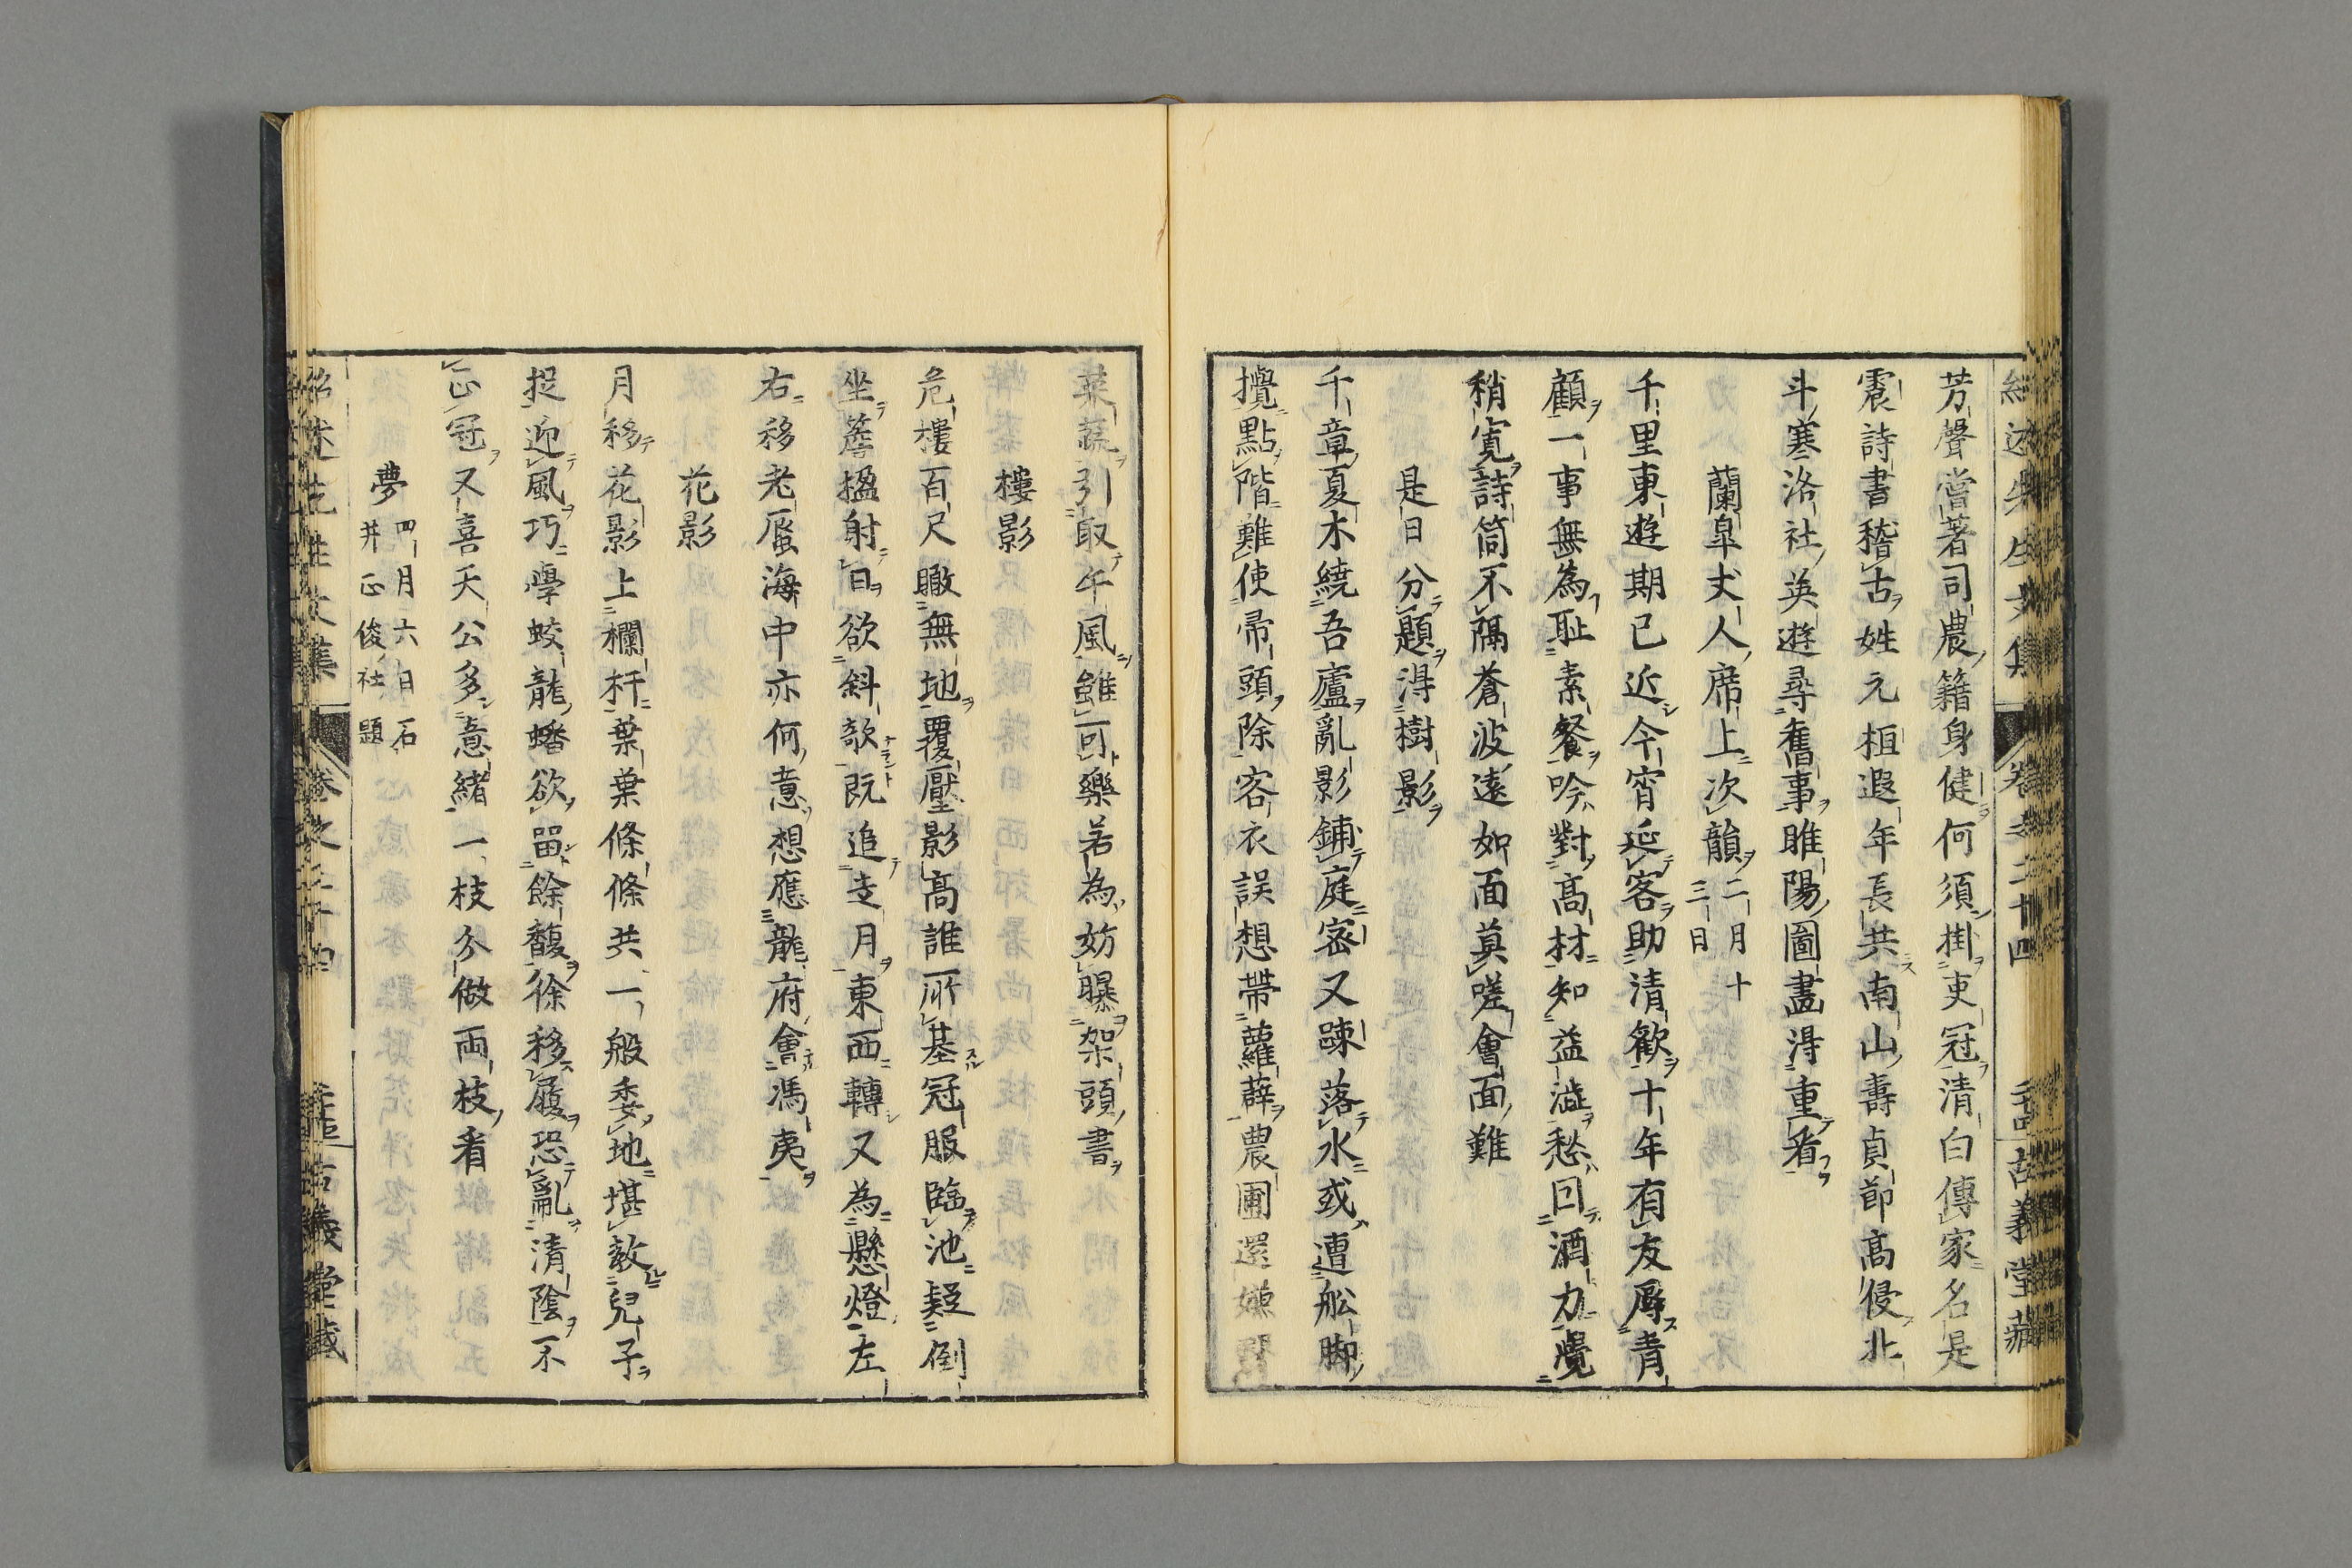 紹述先生文集 卷之二十四 古義堂藏
芳聲嘗著司農籍身健何須掛吏冠清白傳家名是
震詩書稽古姓元桓遐年長共南山壽貞節高侵北
斗寒洛社英遊尋舊事睢陽圖畫得重看
蘭皐丈人席上次韻二月十三日
千里東遊期已近今宵延客助清歡十年有友辱青
顧一事無為耻素餐吟對高材知益澁愁回酒力覺
稍寬詩筒不隔蒼波遠如面莫嗟會面難
是日分題得樹影
千章夏木繞吾廬亂影鋪庭密又踈落水或遭舩脚
攪點階難使帚頭除客衣誤想帶蘿薜農圃還嫌
菜蔬引取午風雖可樂若為妨曝架頭書
樓影
危樓百尺瞰無地覆壓影高誰所基冠服臨池疑倒
坐簷楹射日欲斜欹既追走月東西轉又為懸燈左
右移老蜃海中亦何意想應龍府會馮夷
花影
月移花影上欄杆葉葉條條共一般委地堪教兒子
捉迎風巧學蛟龍蟠欲留餘馥徐移履恐亂清陰不
正冠又喜天公多意緒一枝分做兩枝看
夢四月六日石井正俊社題
紹述先生文集 卷之二十四 古義堂藏